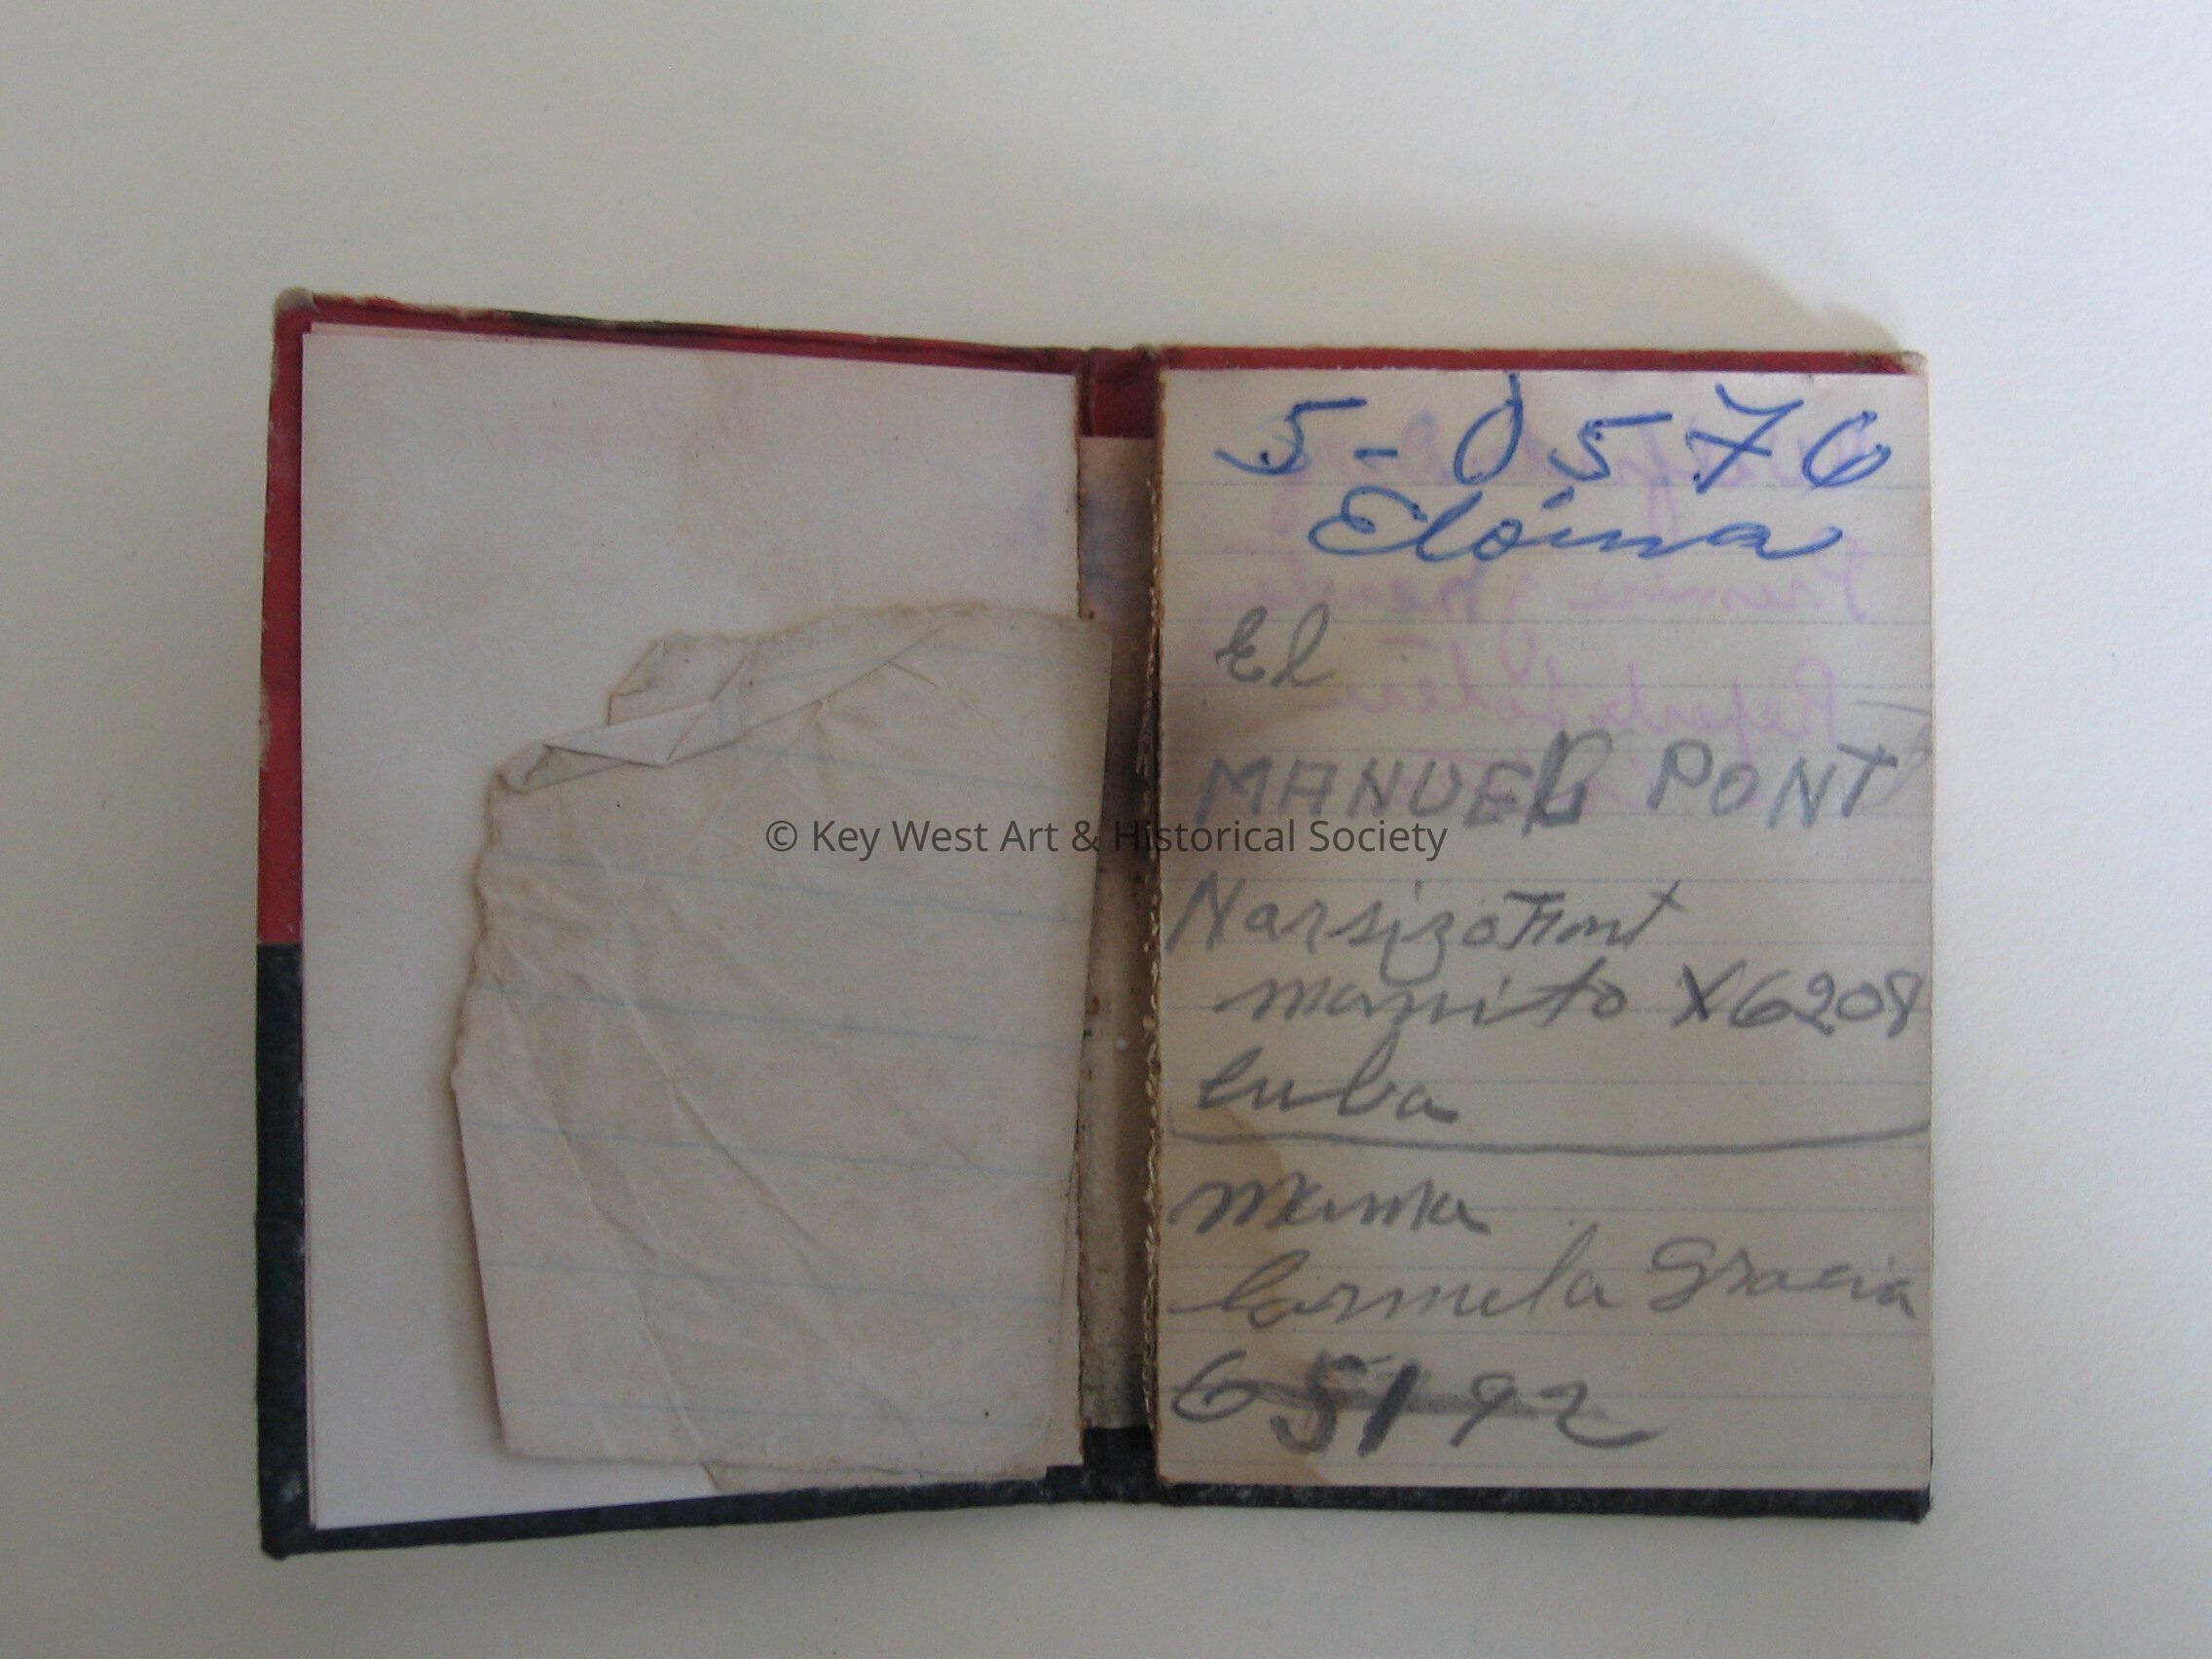 5-0576
Elóina
El
MANUEL PONT
Narsizo Font
manito X6208
Cuba
Mama
Carmela Gracia
65192
© Key West Art & Historical Society